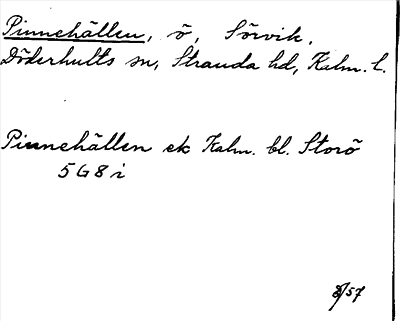 Pinnehällen, ö, Sörvik,
Döderhults sn, Stranda hd, Kalm. l.
Pinnehällen ek Kalm. bl. Storö
5 G 8 i
8/57